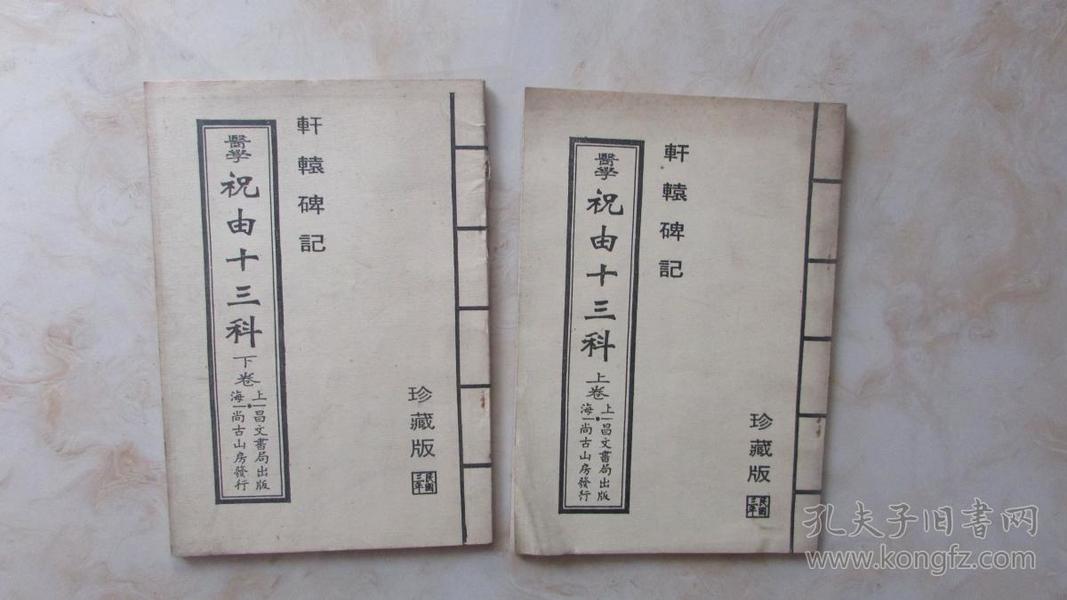 軒轅碑記
醫學祝由十三科下卷
上海
昌文書局出版
尚古山房發行
珍藏版
民國三年
軒轅碑記
醫學祝由十三科上卷
上海
昌文書局出版
尚古山房發行
珍藏版
民國三年
孔夫子旧書网
www.kongfz.com